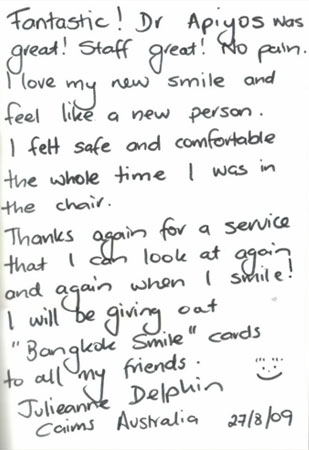 Fantastic! Dr Apiyos was
great! Staff great! No pain.
I love my new smile and
feel like a new person.
I felt safe and comfortable
the whole time I was in
the chair.
Thanks again for a service
that I can look at again
and again when I smile!
I will be giving out
"Bangkok Smile" cards
to all my friends.
Julieanne Delphin
Cairns Australia 27/8/09